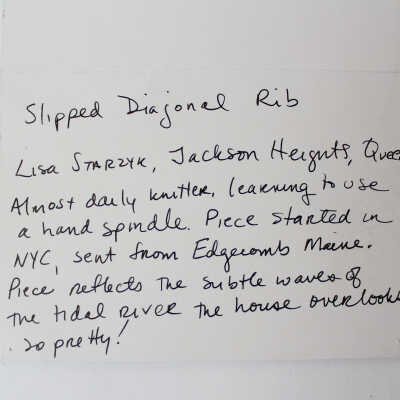 Slipped Diagonal Rib
Lisa Starzyk, Jackson Heights, Quee
Almost daily knitter, learning to use
a hand spindle. Piece started in
NYC, sent from Edgecomb Maine.
Piece reflects the subtle waves of
the tidal river the house overlooks
. so pretty!